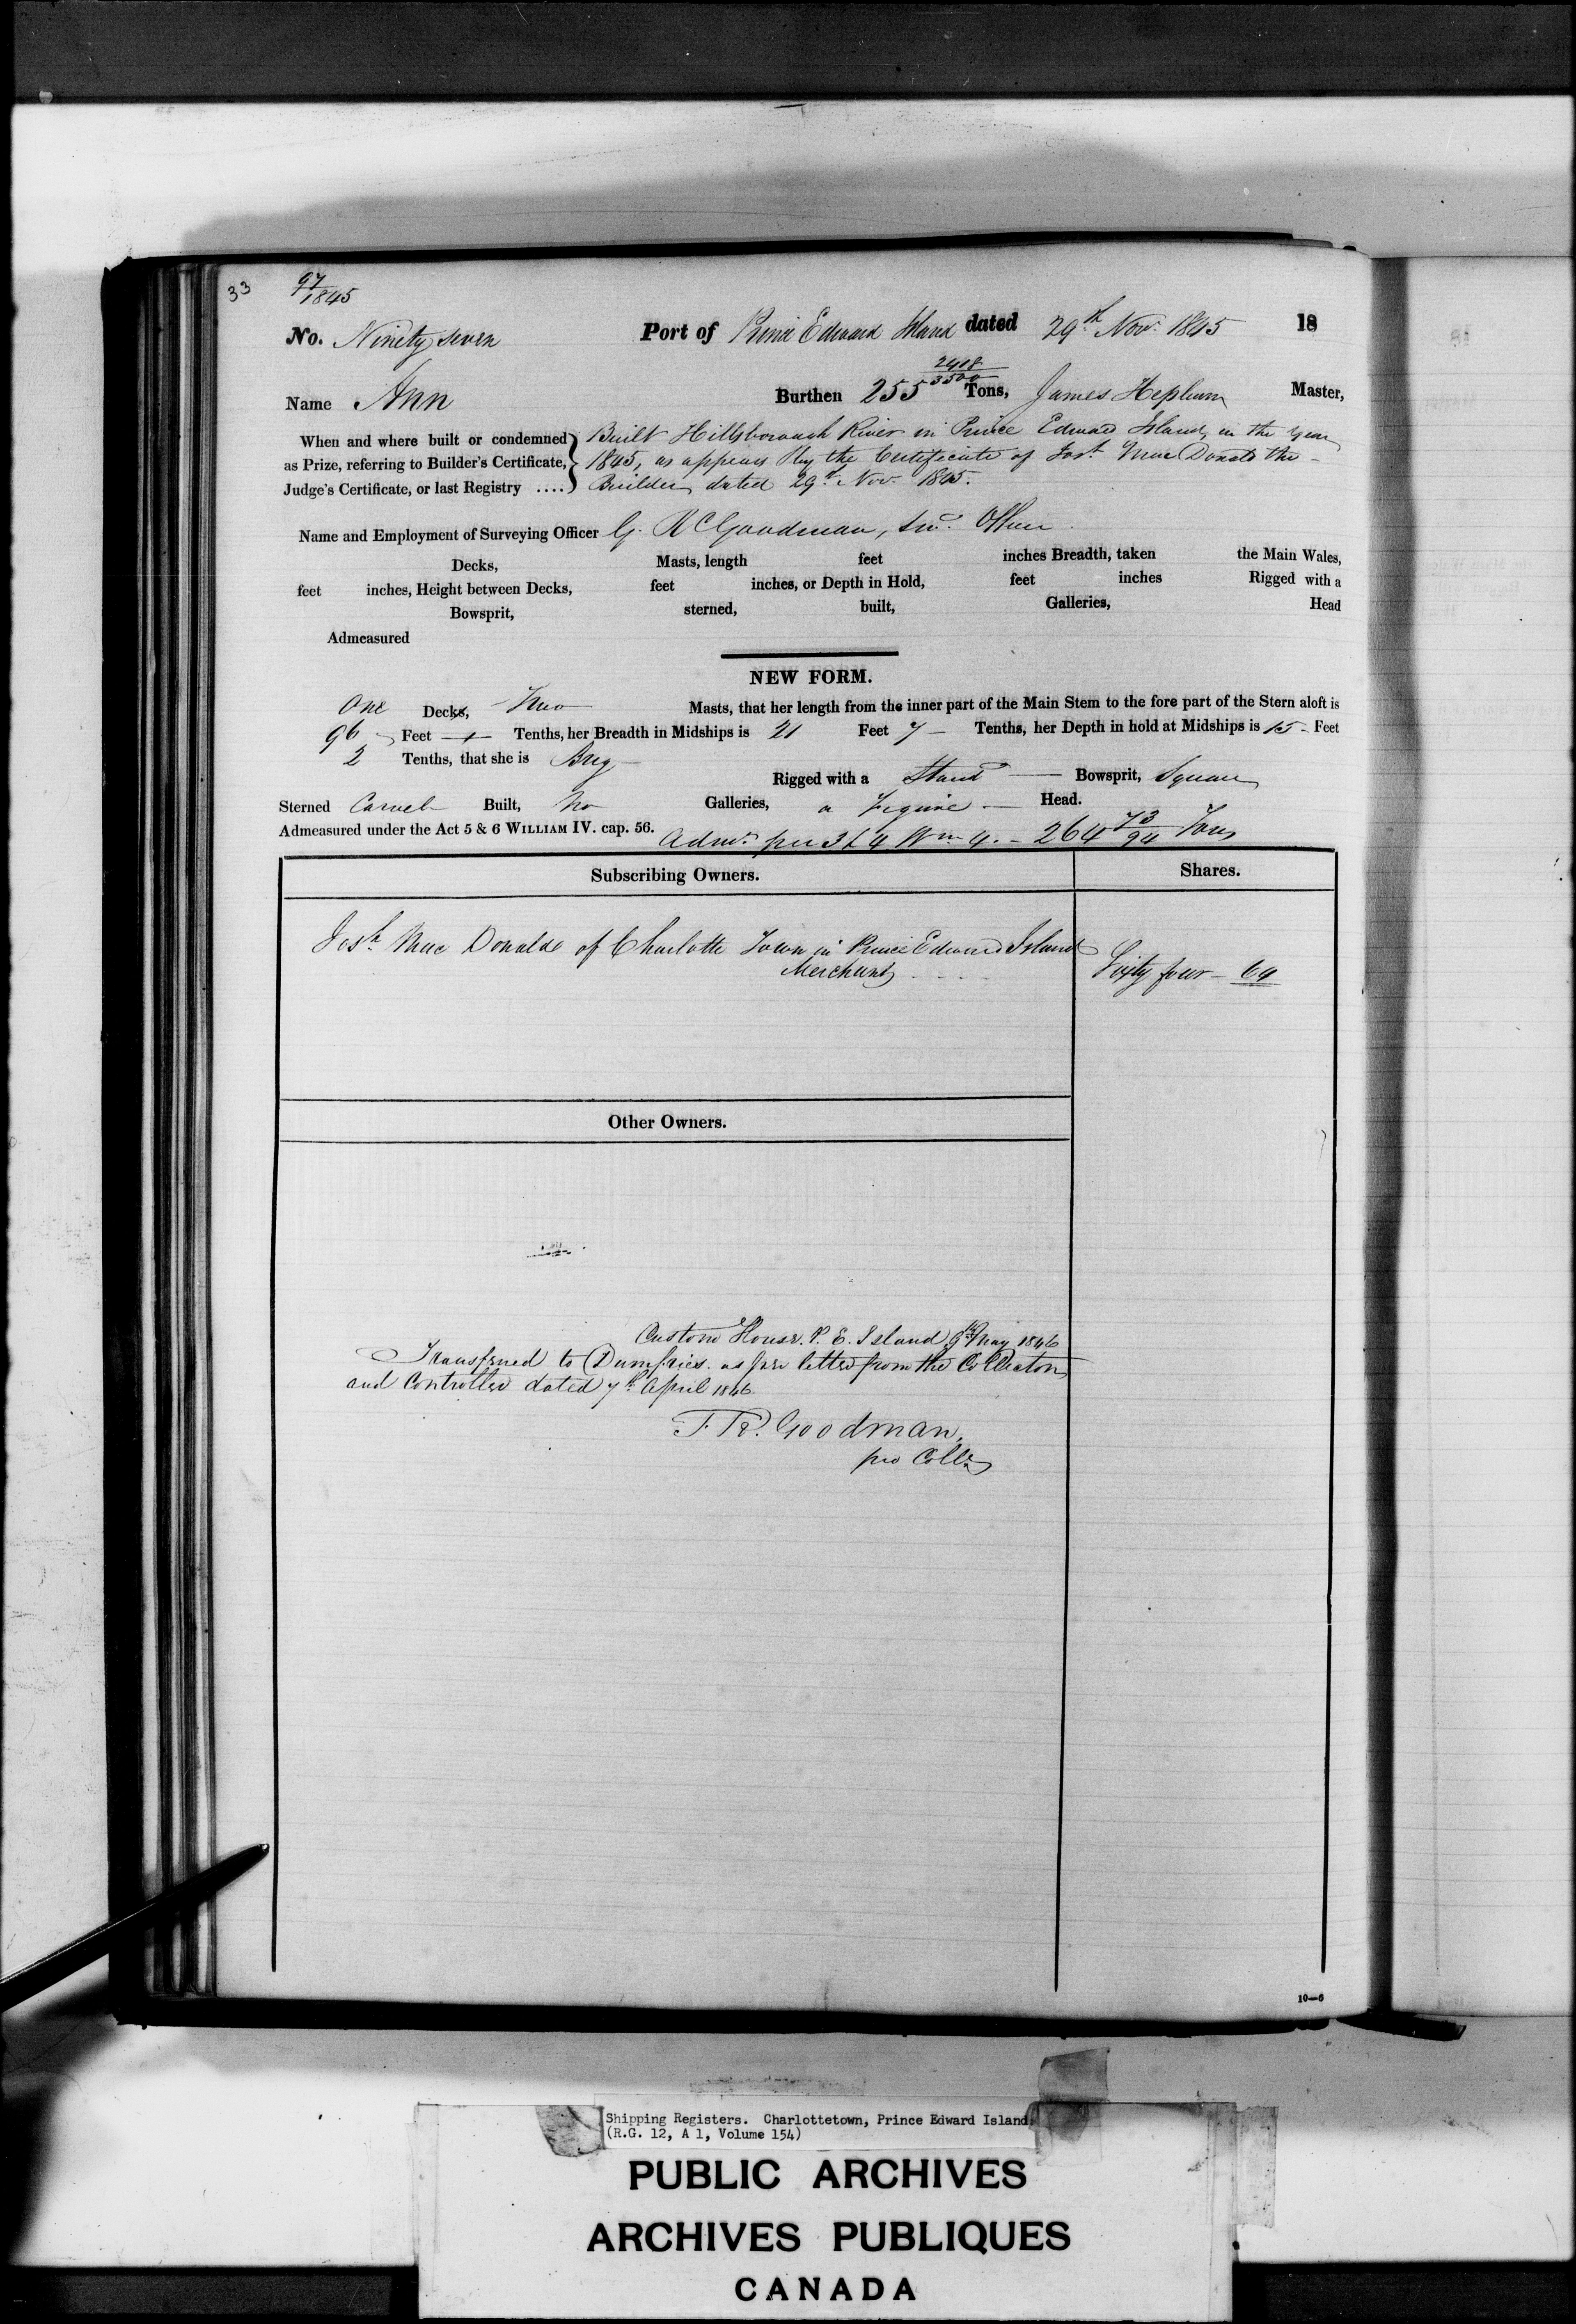 33
97/1845
No. Ninety seven Port of Prince Edward Island dated 29th Novr 1845 18
Name Ann Burthen 255 2418/3500 Tons, James Hepburn Master,
When and where built or condemned Built Hillsborough River in Prince Edward Island, in the Year
as Prize, referring to Builder's Certificate, 1845, as appears by the Certificate of Josh MacDonald the
Judge's Certificate, or last Registry .... Builder, dated 29th Nov 1845.
Name and Employment of Surveying Officer G. R Goodman, Officer
Decks, Masts, length feet inches Breadth, taken the Main Wales,
feet inches, Height between Decks, feet inches, or Depth in Hold, feet inches Rigged with a
Bowsprit, sterned, built, Galleries, Head
Admeasured
NEW FORM.
One Decks, Two Masts, that her length from the inner part of the Main Stem to the fore part of the Stern aloft is
96 Feet — Tenths, her Breadth in Midships is 21 Feet 7 — Tenths, her Depth in hold at Midships is 15 - Feet
2 Tenths, that she is Brig Rigged with a Standg — Bowsprit, Square
Sterned Carvel Built, No Galleries, a Figure — Head.
Admeasured under the Act 5 & 6 WILLIAM IV. cap. 56. Adms. per 3 & 4 Wm 4. - 264 73/94 Tons
Subscribing Owners. Shares.
Josh Mac Donald of Charlotte Town in Prince Edward Island
Merchant Sixty four - 64
Other Owners.
Custom House. P. E. Island, 9th May 1846
Transferred to Dumfries. as per letter from the Collector
and Controller dated 7th April 1846.
T. R. Goodman,
pro Collr
10—6
Shipping Registers. Charlottetown, Prince Edward Island
(R.G. 12, A 1, Volume 154)
PUBLIC ARCHIVES
ARCHIVES PUBLIQUES
CANADA